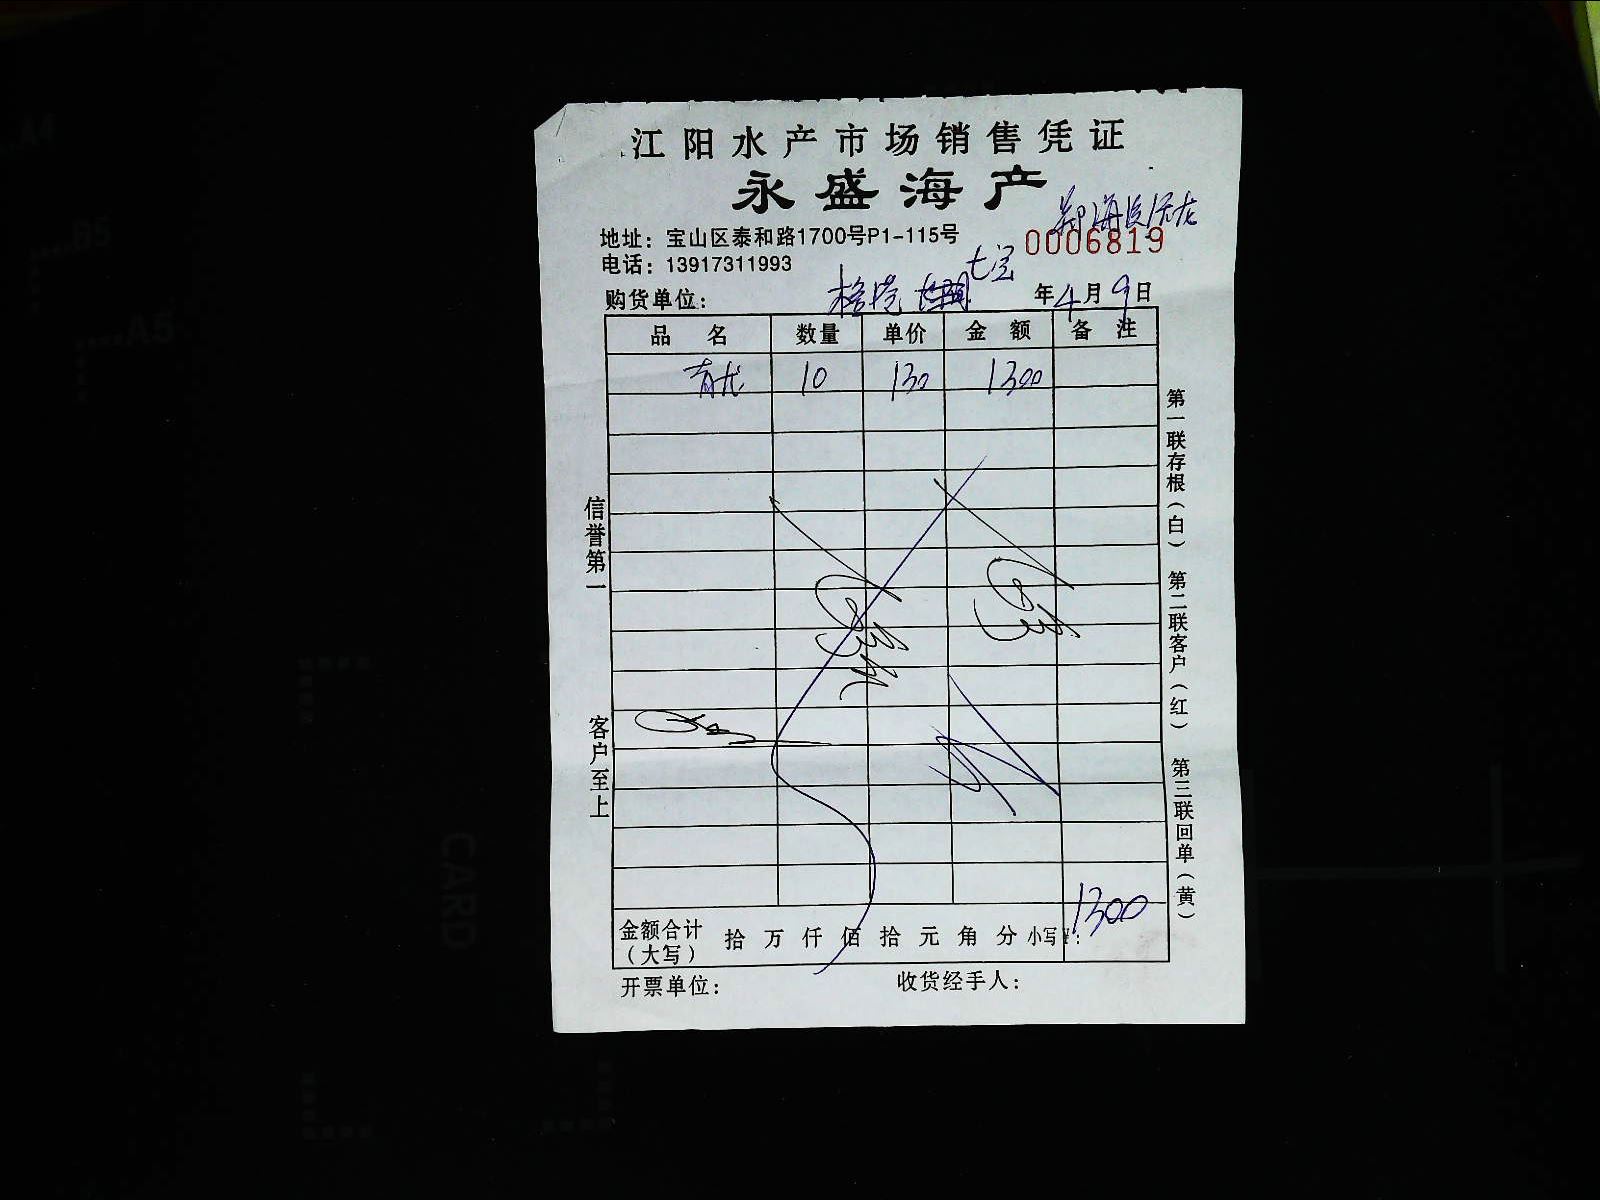 江阳水产市场销售凭证
永盛海产
地址：宝山区泰和路1700号P1-115号
0006819
电话：13917311993
七宝
购货单位： 年4月9日
品 名 数量 单价 金 额 备 注
青龙 10 130 1300
信誉第一
客户至上
第一联存根（白） 第二联客户（红） 第三联回单（黄）
1300
金额合计（大写） 拾 万 仟 佰 拾 元 角 分 小写¥：
开票单位： 收货经手人：
A4
B5
A5
CARD